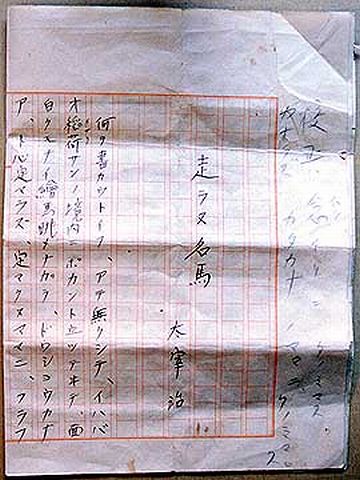 校正 念イリニ タノミマス。
カナラズ カタカナ ノママニ タノミマス
走ラヌ名馬
太宰治
何ヲ書カウトイフ、アテ無クシテ、イハバ
オ稲荷サンノ境内ニポカント立ツテヰテ、面
白クモナイ繪馬眺メナガラ、ドウシヨウカナ
ア、ト心定マラズ、定マラヌママニ、フラフ